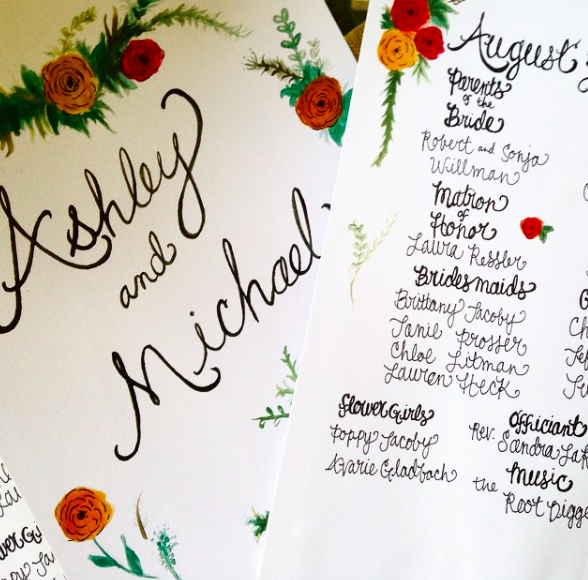 Ashley
and
Michael
August
Parents
of the
Bride
Robert and Sonja
Willman
Matron
of
Honor
Laura Ressler
Bridesmaids
Brittany Jacoby
Janie Prosser
Chloe Litman
Lauren Heck
Flower Girls
Poppy Jacoby
Avarie Gladbach
Officiant
Rev. Sandra
Music
the Root